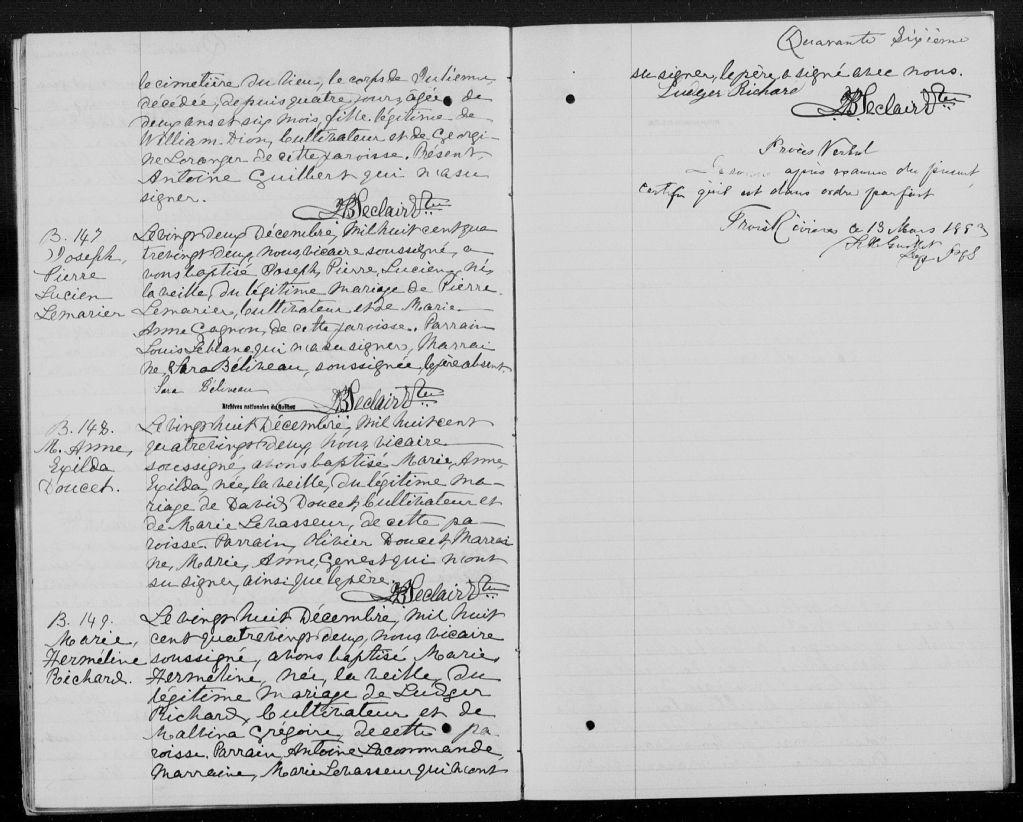 le cimetière du lieu, le corps de
décédée, depuis quatre jours, âgée de
deux ans et six mois, fille légitime de
William Dion, Cultivateur et de Georgi-
ne Loranger de cette paroisse. Présent,
Antoine Guilbert qui n'a su
signer.
JB Leclair Vic
B. 147
Joseph,
Pierre
Lucien
Lemarier
Le vingt deux Décembre, Mil huit cent qua
trevingt deux, nous vicaire soussigné, a
vons baptisé Joseph, Pierre, Lucien, né,
la veille, du légitime mariage de Pierre
Lemarier, Cultivateur et de Marie
Anne Gagnon, de cette paroisse. Parrain
Louis Leblanc qui n'a su signer, Marrai
ne, Sara Béliveau, soussignée, le père absent
Sara Béliveau
JB Leclair Vic
Archives nationales du Québec
B. 148.
M. Anne,
Exilda
Doucet.
Le vingt huit Décembre, Mil huit cent
quatrevingt deux, nous vicaire
soussigné, avons baptisé Marie, Anne,
Exilda, née, la veille, du légitime ma-
riage de David Doucet, Cultivateur et
de Marie Levasseur, de cette pa-
roisse. Parrain, Olivier Doucet, Marrai
ne, Marie, Anne, Genest qui n'ont
su signer, ainsi que le père.
JB Leclair Vic
B. 149.
Marie,
Herméline
Richard.
Le vingt huit Décembre, Mil huit
cent quatrevingt deux, nous vicaire
soussigné, avons baptisé Marie,
Herméline, née, la veille, du
légitime mariage de Ludger
Richard, Cultivateur et de
Malvina Grégoire, de cette pa-
roisse. Parrain, Antoine Lacommande,
Marraine, Marie Levasseur qui n'ont
Quarante Sixième
su signer, le père, a signé avec nous.
Ludger Richard
JB Leclair Vic
Procès Verbal
après examen du présent,
certifie qu'il est dans ordre parfait
Trois Rivières ce 13 Mars 1883